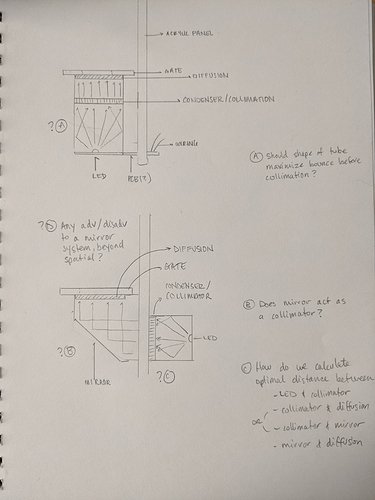 ACRYLIC PANEL
GATE
DIFFUSION
CONDENSER/COLLIMATION
? Ⓐ
WIRING
LED
PCB(?)
Ⓐ Should shape of tube
maximize bounce before
collimation?
? Ⓓ Any adv/disadv
to a mirror
system, beyond
spatial?
DIFFUSION
GATE
CONDENSER/
COLLIMATOR
LED
? Ⓑ
? Ⓒ
MIRROR
Ⓑ Does mirror act as
a collimator?
Ⓒ How do we calculate
optimal distance between
- LED & collimator
- collimator & diffusion
OR
- collimator & mirror
- mirror & diffusion